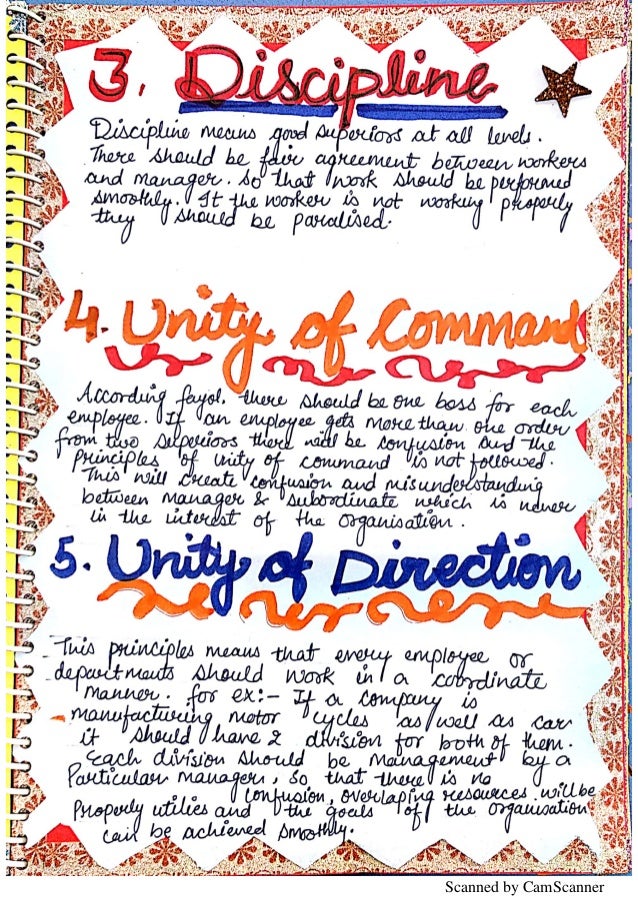 3. Discipline
Discipline means good superiors at all levels.
There should be fair agreement between workers
and manager. so that work should be performed
smoothly. If the worker is not working properly
they should be paralised.
4. Unity of Command
According fayol, there should be one boss for each
employee. If an employee gets more than one order
from two superiors there will be confusion and the
principles of unity of command is not followed.
This will create confusion and misunderstanding
between manager & subordinate which is never
in the interest of the organisation.
5. Unity of Direction
This principles means that every employee or
departments should work in a coordinate
manner. for ex:- If a company is
manufacturing motor cycles as well as car
it should have 2 division for both of them.
Each division should be management by a
Particular manager, so that there is no
confusion, overlaping resources will be
Properly utilies and the goals of the organisation
can be achieved smoothly.
Scanned by CamScanner